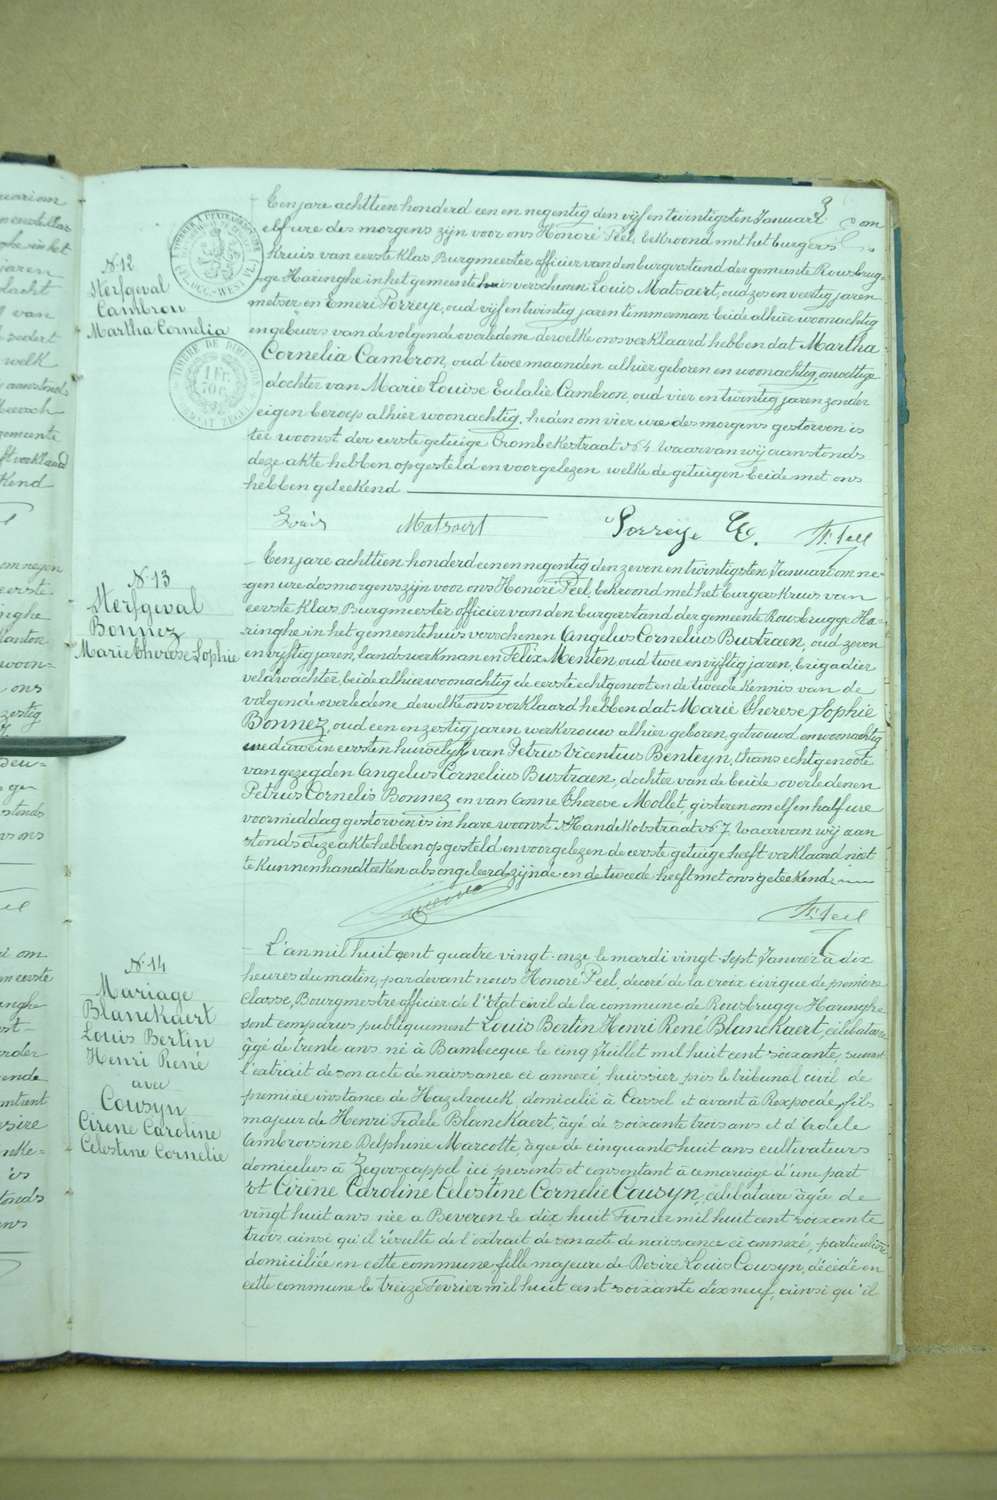 3
N. 12
Sterfgeval
Cambron
Martha Cornelia
TIMBRE DE DIMENSION
1 FR.
Een jare achttien honderd een en negentig den vijf en twintigsten Januari om
elf ure des morgens zijn voor ons Honoré Peel, bekroond met het burgers
kruis van eerste klas Burgmeester officier van den burgerstand der gemeente Rousbrug-
ge Haringhe in het gemeentehuis verschenen Louis Matsaert, oud zes en veertig jaren
metser en Emeri Porreye, oud vijf en twintig jaren timmerman beide alhier woonachtig
en gebeurs van de volgende overledene dewelke ons verklaard hebben dat Martha
Cornelia Cambron, oud twee maanden alhier geboren en woonachtig, onwettige
dochter van Marie Louise Eulalie Cambron, oud vier en twintig jaren zonder
eigen beroep alhier woonachtig, heden om vier ure des morgens gestorven is
ter woonst der eerste getuige Crombekestraat N. 4 Waarvan wij aanstonds
deze akte hebben opgesteld en voorgelezen welke de getuigen beide met ons
hebben geteekend
Louis Matsaert Porreye E. H. Peel
N. 13
Sterfgeval
Bonnez
Marie Therese Sophie
Een jare achttien honderd een en negentig den zeven en twintigsten Januari om ne-
gen ure des morgens zijn voor ons Honoré Peel, bekroond met het burgers kruis van
eerste klas, Burgmeester officier van den burgerstand der gemeente Rousbrugge Ha-
ringhe in het gemeentehuis verschenen Angelus Cornelius Bustraen, oud zeven
en vijftig jaren, landswerkman en Felix Menten oud twee en vijftig jaren, brigadier
veldwachter, beide alhier woonachtig de eerste echtgenoot en de tweede kennis van de
volgende overledene dewelke ons verklaard hebben dat Marie Therese Sophie
Bonnez, oud een en zestig jaren werkvrouw alhier geboren, getrouwd en woonachtig
weduwe in eersten huwelijk van Petrus Vicentius Benteyn, thans echtgenoote
van gezegden Angelus Cornelius Bustraen, dochter van de beide overledenen
Petrus Cornelis Bonnez en van Anne Therese Mollet, gisteren om elf en half ure
voormiddag gestorven is in hare woonst N. 7 Waarvan wij aan
stonds deze akte hebben opgesteld en voorgelezen de eerste getuige heeft verklaard niet
te kunnen handteeken als ongeleerd zijnde en de tweede heeft met ons geteekend
H. Peel
N. 14
Mariage
Blanckaert
Louis Bertin
Henri René
avec
Cousyn
Cirène Caroline
Celestine Cornelie
L'an mil huit cent quatre vingt-onze le mardi vingt-sept Janvier à dix
heures du matin, par devant nous Honoré Peel, decoré de la croix civique de premiere
classe, Bourgmestre officier de l'Etat civil de la commune de Rousbrugge Haringhe
sont comparus publiquement Louis Bertin Henri René Blanckaert, célibataire
âgé de trente ans né à Bambecque le cinq Juillet mil huit cent soixante, suivant
l'extrait de son acte de naissance ci annexé, huissier près le tribunal civil de
première instance de Hazebrouck domicilié à Cassel et avant à Rexpoede, fils
majeur de Henri Fidele Blanckaert, âgé de soixante trois ans et d'Adèle
Ambroisine Delphine Marcotte, âgée de cinquante huit ans cultivateurs
domiciliés à Zegerscappel ici présents et consentant à ce mariage d'une part
Et Cirène Caroline Celestine Cornelie Cousyn, célibataire âgée de
vingt huit ans née à Beveren le dix huit Fevrier mil huit cent soixante
trois, ainsi qu'il résulte de l'extrait de son acte de naissance ci annexé, particulière
domiciliée en cette commune, fille majeure de Desiré Louis Cousyn, décédé en
cette commune le treize Fevrier mil huit cent soixante dix neuf, ainsi qu'il